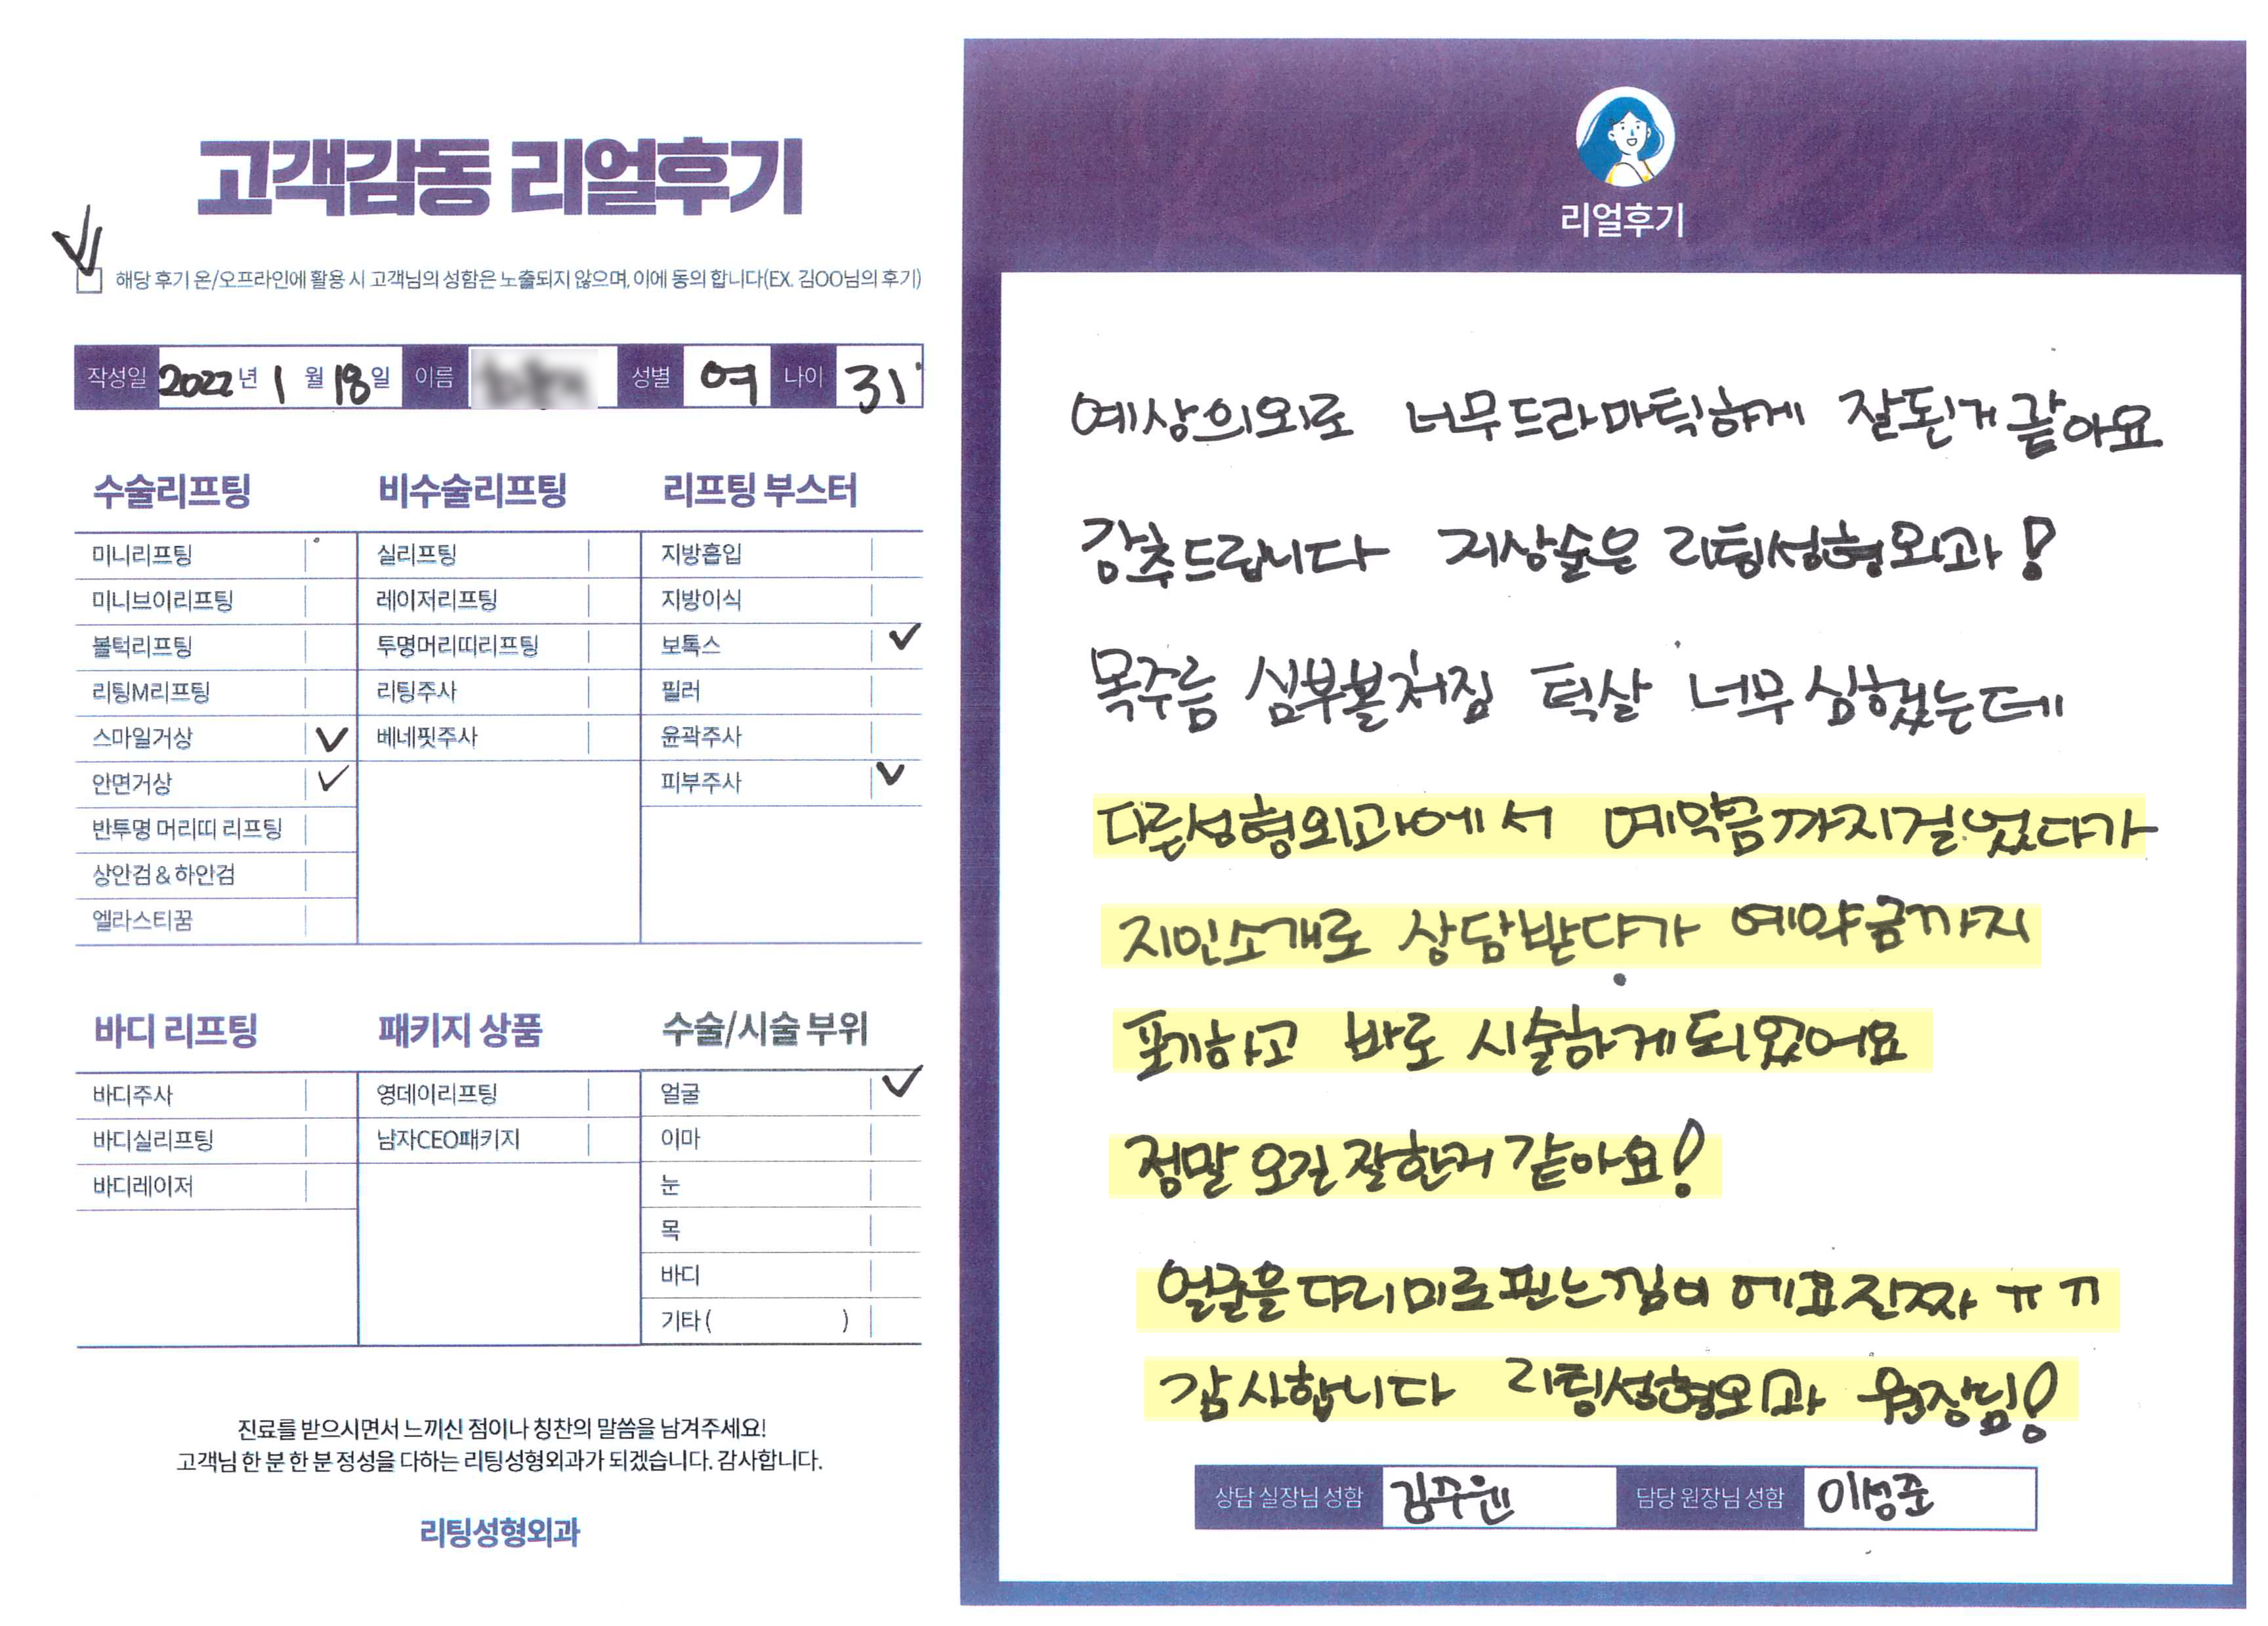 고객감동 리얼후기
해당 후기 온/오프라인에 활용 시 고객님의 성함은 노출되지 않으며, 이에 동의 합니다(EX. 김OO님의 후기)
작성일 2022년 1월 18일 이름 성별 여 나이 31
수술리프팅
미니리프팅
미니브이리프팅
볼턱리프팅
리팅M리프팅
스마일거상
안면거상
반투명 머리띠 리프팅
상안검 & 하안검
엘라스티꿈
비수술리프팅
실리프팅
레이저리프팅
투명머리띠리프팅
리팅주사
베네핏주사
리프팅 부스터
지방흡입
지방이식
보톡스
필러
윤곽주사
피부주사
바디 리프팅
바디주사
바디실리프팅
바디레이저
패키지 상품
영데이리프팅
남자CEO패키지
수술/시술 부위
얼굴
이마
눈
목
바디
기타 ( )
진료를 받으시면서 느끼신 점이나 칭찬의 말씀을 남겨주세요!
고객님 한 분 한 분 정성을 다하는 리팅성형외과가 되겠습니다. 감사합니다.
리팅성형외과
리얼후기
예상의외로 너무드라마틱하게 잘된거같아요
강추드립니다 지상술은 리팅성형외과!
목주름 심부볼처짐 턱살 너무심했는데
다른성형외과에서 예약금까지걸었다가
지인소개로 상담받다가 예약금까지
포기하고 바로 시술하게되었어요
정말 오길잘한거 같아요!
얼굴을다리미로핀느낌이에요진짜 ㅠㅠ
감사합니다 리팅성형외과 원장님!
상담 실장님 성함 김주원 담당 원장님 성함 이성준